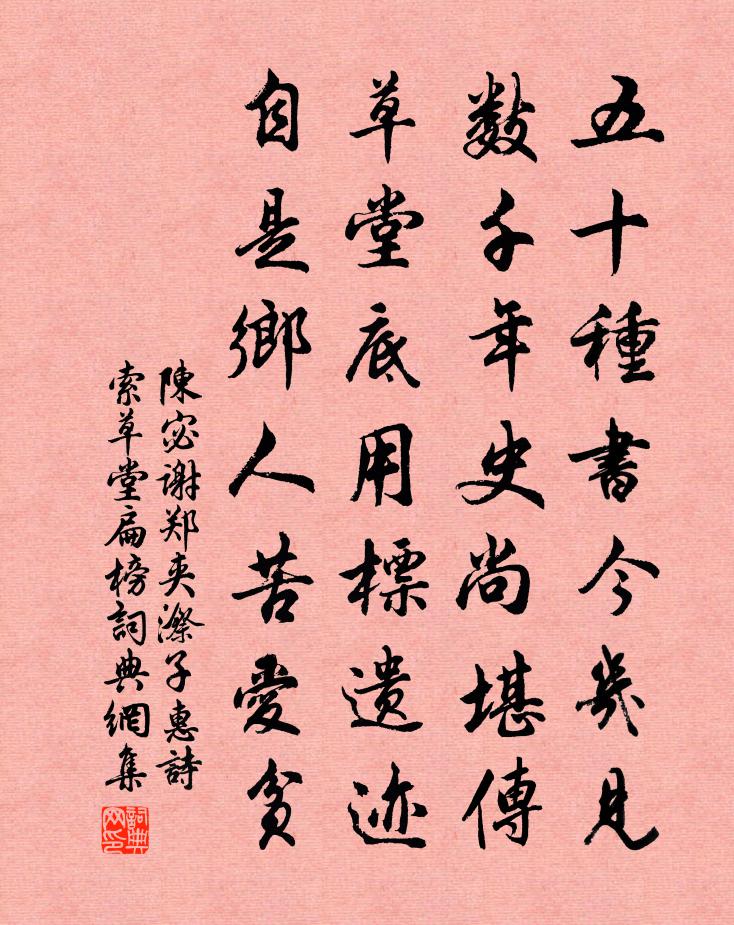 五十種書今幾見
数千年史尚堪傳
草堂底用標遗迹
自是鄉人苦愛贫
陳宓谢郑夹漈子惠詩
索草堂扁榜詞典網集
詞典网印